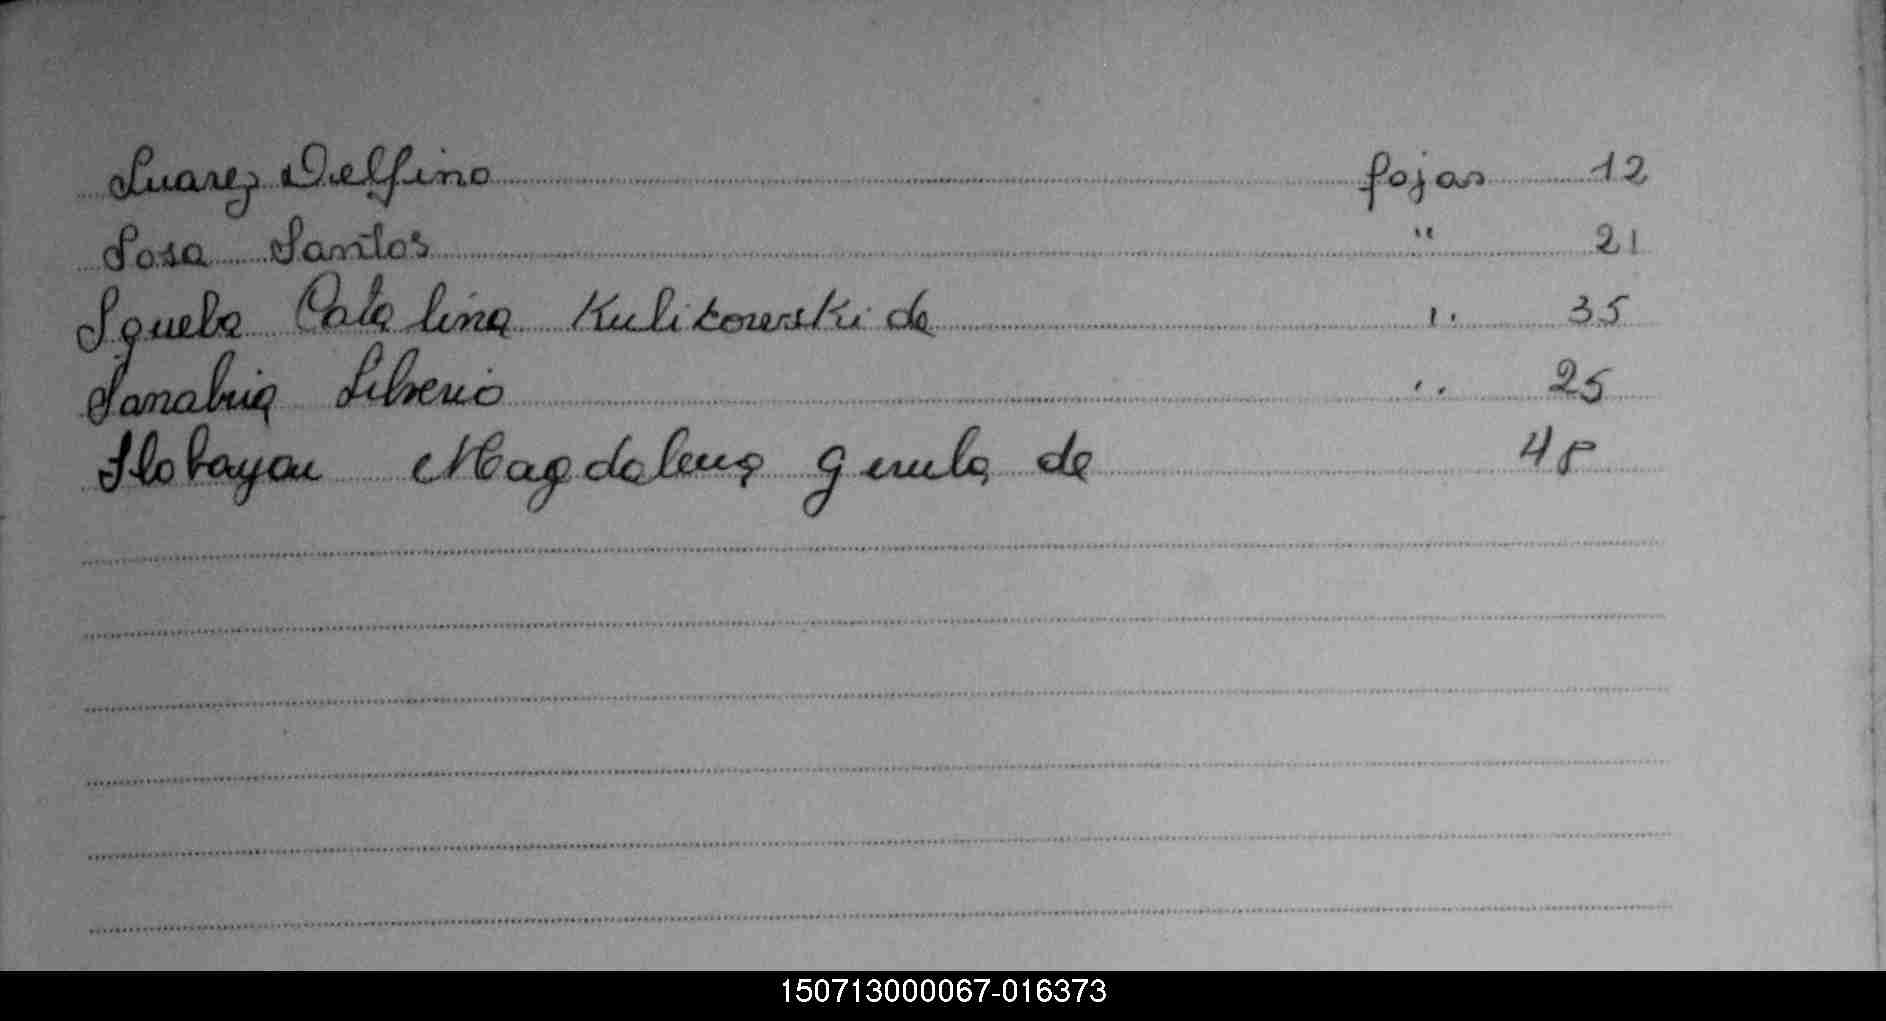 Suarez Delfino fojas 12
Sosa Santos " 21
Squeba Catalina Kulikowski de " 35
Sanabria Silverio " 25
Slobayan Magdalena de 48
150713000067-016373